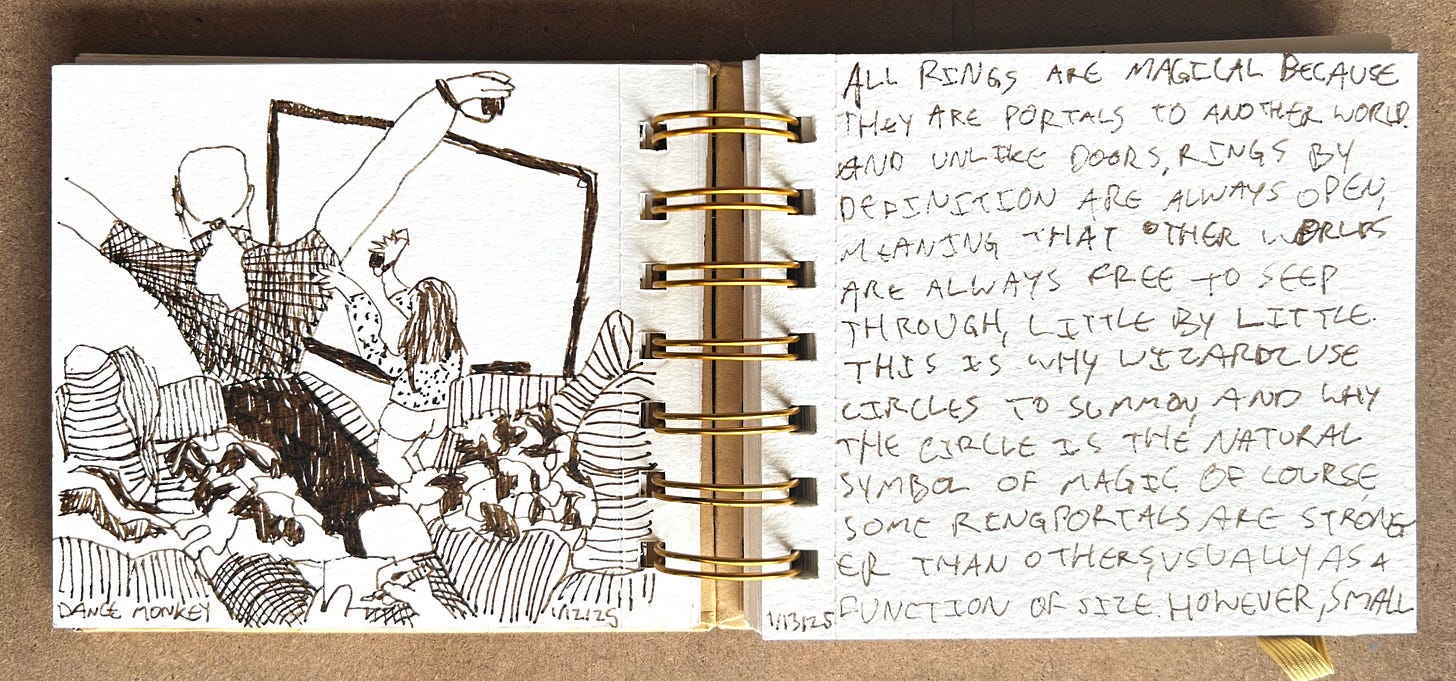 DANCE MONKEY
1/12/25
ALL RINGS ARE MAGICAL BECAUSE
THEY ARE PORTALS TO ANOTHER WORLD.
AND UNLIKE DOORS, RINGS BY
DEFINITION ARE ALWAYS OPEN,
MEANING THAT OTHER WORLDS
ARE ALWAYS FREE TO SEEP
THROUGH, LITTLE BY LITTLE.
THIS IS WHY WIZARDZ USE
CIRCLES TO SUMMON, AND WHY
THE CIRCLE IS THE NATURAL
SYMBOL OF MAGIC. OF COURSE,
SOME RINGPORTALS ARE STRONG
ER THAN OTHERS, USUALLY AS A
FUNCTION OF SIZE. HOWEVER, SMALL
1/13/25